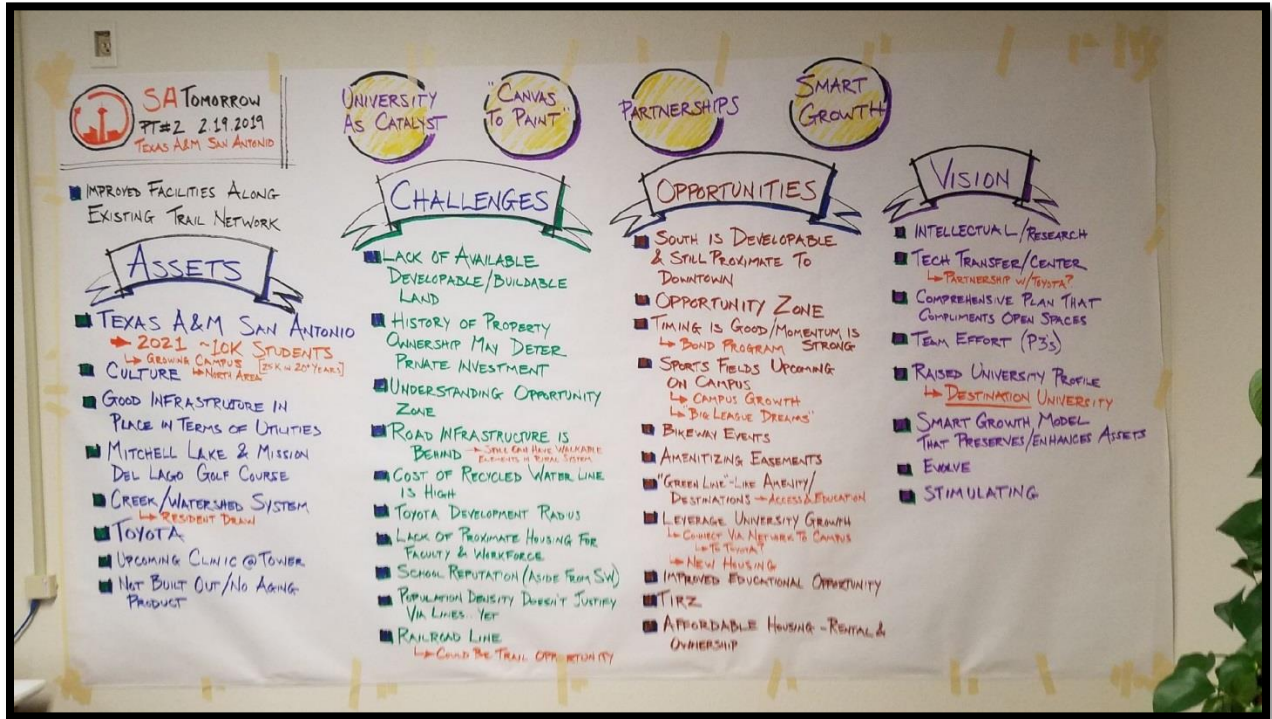 SA TOMORROW
PT#2 2.19.2019
TEXAS A&M SAN ANTONIO
UNIVERSITY
AS CATALYST
"CANVAS
TO PAINT"
PARTNERSHIPS
SMART
GROWTH
IMPROVED FACILITIES ALONG
EXISTING TRAIL NETWORK
ASSETS
TEXAS A&M SAN ANTONIO
2021 ~10K STUDENTS
GROWING CAMPUS [25K IN 20+ YEARS]
NORTH AREA
CULTURE
GOOD INFRASTRUCTURE IN
PLACE IN TERMS OF UTILITIES
MITCHELL LAKE & MISSION
DEL LAGO GOLF COURSE
CREEK/WATERSHED SYSTEM
RESIDENT DRAW
TOYOTA
UPCOMING CLINIC @ TOWER
NOT BUILT OUT/NO AGING
PRODUCT
CHALLENGES
LACK OF AVAILABLE
DEVELOPABLE/BUILDABLE
LAND
HISTORY OF PROPERTY
OWNERSHIP MAY DETER
PRIVATE INVESTMENT
UNDERSTANDING OPPORTUNITY
ZONE
ROAD INFRASTRUCTURE IS
BEHIND → STILL CAN HAVE WALKABLE
ELEMENTS IN RURAL SYSTEM
COST OF RECYCLED WATER LINE
IS HIGH
TOYOTA DEVELOPMENT RADIUS
LACK OF PROXIMATE HOUSING FOR
FACULTY & WORKFORCE
SCHOOL REPUTATION (ASIDE FROM SW)
POPULATION DENSITY DOESN'T JUSTIFY
VIA LINES...YET
RAILROAD LINE
COULD BE TRAIL OPPORTUNITY
OPPORTUNITIES
SOUTH IS DEVELOPABLE
& STILL PROXIMATE TO
DOWNTOWN
OPPORTUNITY ZONE
TIMING IS GOOD/MOMENTUM IS
STRONG
BOND PROGRAM
SPORTS FIELDS UPCOMING
ON CAMPUS
CAMPUS GROWTH
BIG LEAGUE DREAMS"
BIKEWAY EVENTS
AMENITIZING EASEMENTS
"GREEN LINE"-LIKE AMENITY/
DESTINATIONS → ACCESS & EDUCATION
LEVERAGE UNIVERSITY GROWTH
CONNECT VIA NETWORK TO CAMPUS
TO TOYOTA?
NEW HOUSING
IMPROVED EDUCATIONAL OPPORTUNITY
TIRZ
AFFORDABLE HOUSING - RENTAL &
OWNERSHIP
VISION
INTELLECTUAL/RESEARCH
TECH TRANSFER/CENTER
PARTNERSHIP W/TOYOTA?
COMPREHENSIVE PLAN THAT
COMPLIMENTS OPEN SPACES
TEAM EFFORT (P3's)
RAISED UNIVERSITY PROFILE
DESTINATION UNIVERSITY
SMART GROWTH, MODEL
THAT PRESERVES/ENHANCES ASSETS
EVOLVE
STIMULATING